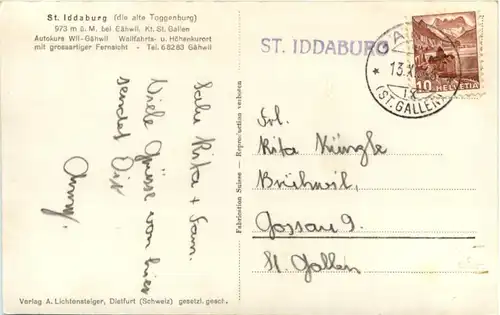 St. Iddaburg (die alte Toggenburg)
973 m ü. M. bei Gähwil, Kt. St. Gallen
Autokurs Wil-Gähwil Wallfahrts- u. Höhenkurort
mit grossartiger Fernsicht - Tel. 6 82 83 Gähwil
Salu Rita + Fam.
Viele Grüsse von hier
sendet Dir
Verlag A. Lichtensteiger, Dietfurt (Schweiz) gesetzl. gesch.
Fabrication Suisse - Reproduction verboten
ST. IDDABURG
13.X
(ST. GALLEN)
10 HELVETIA
Frl.
Rita Küngle
Brühwil,
Gossau 9.
St. Gallen